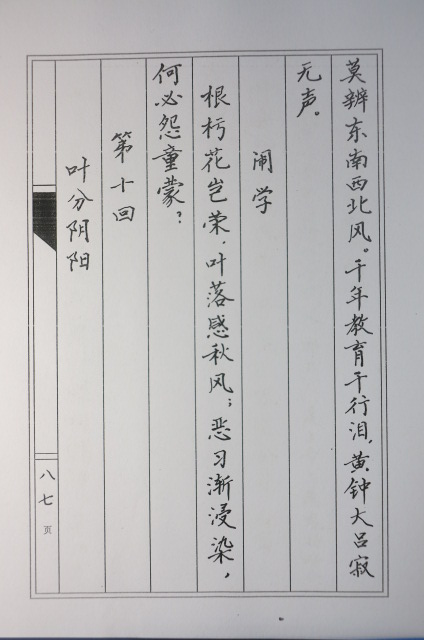 莫辨东南西北风。千年教育千行泪，黄钟大吕寂
无声。
闹学
根朽花岂荣，叶落感秋风；恶习渐浸染，
何必怨童蒙？
第十回
叶分阴阳
八七页